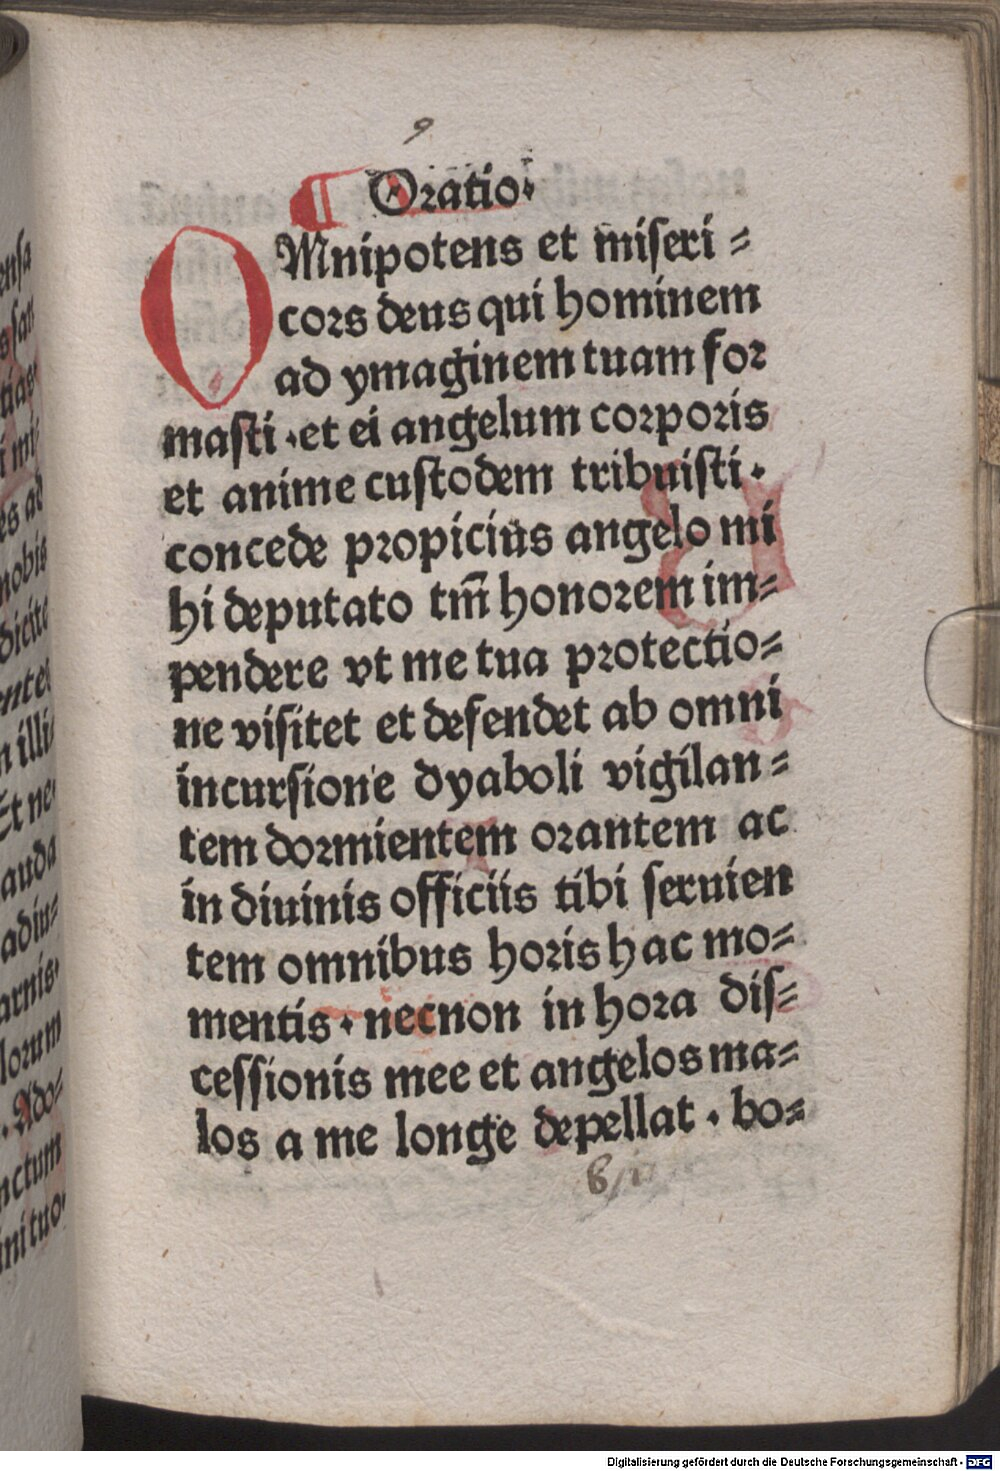 9
¶ Oratio·
OMnipotens et miseri⸗
cors deus qui hominem
ad ymaginem tuam for
masti ·et ei angelum corporis
et anime custodem tribuisti·
concede propicius angelo mi
hi deputato tm̄ honorem im⸗
pendere vt me tua protectio⸗
ne visitet et defendet ab omni
incursione dyaboli vigilan⸗
tem dormientem orantem ac
in diuinis officiis tibi seruien
tem omnibus horis hac mo⸗
mentis · necnon in hora dis⸗
cessionis mee et angelos ma⸗
los a me longe depellat · bo⸗
ensa
san
tias·
i mi
es ad
nobis
dicite
entes
n illi
Et ne
auda
adiu⸗
arnis·
lorum
· Ado⸗
nctum
ini tuo·
Digitalisierung gefördert durch die Deutsche Forschungsgemeinschaft - DFG